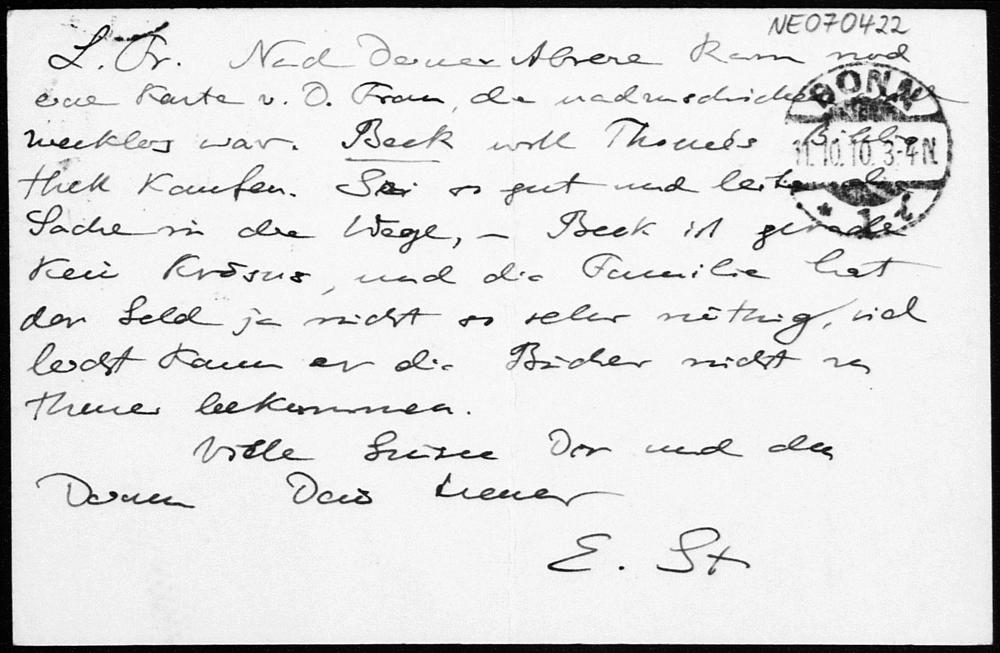 NE070422
L. Fr. Nach Deiner Abreise kam noch
eine Karte v. D. Frau, die nachzuschicken
zwecklos war. Beck will Thomés Biblio
BONN
11.10.10. 3-4 N.
* 1 i
thek kaufen. Sei so gut und leite die
Sache in die Wege, – Beck ist gerade
kein Krösus, und die Familie hat
das Geld ja nicht so sehr nöthig, viel
leicht kann er die Bücher nicht zu
theuer bekommen.
Viele Grüsse Dir und den
Deinen Dein treuer
E. St